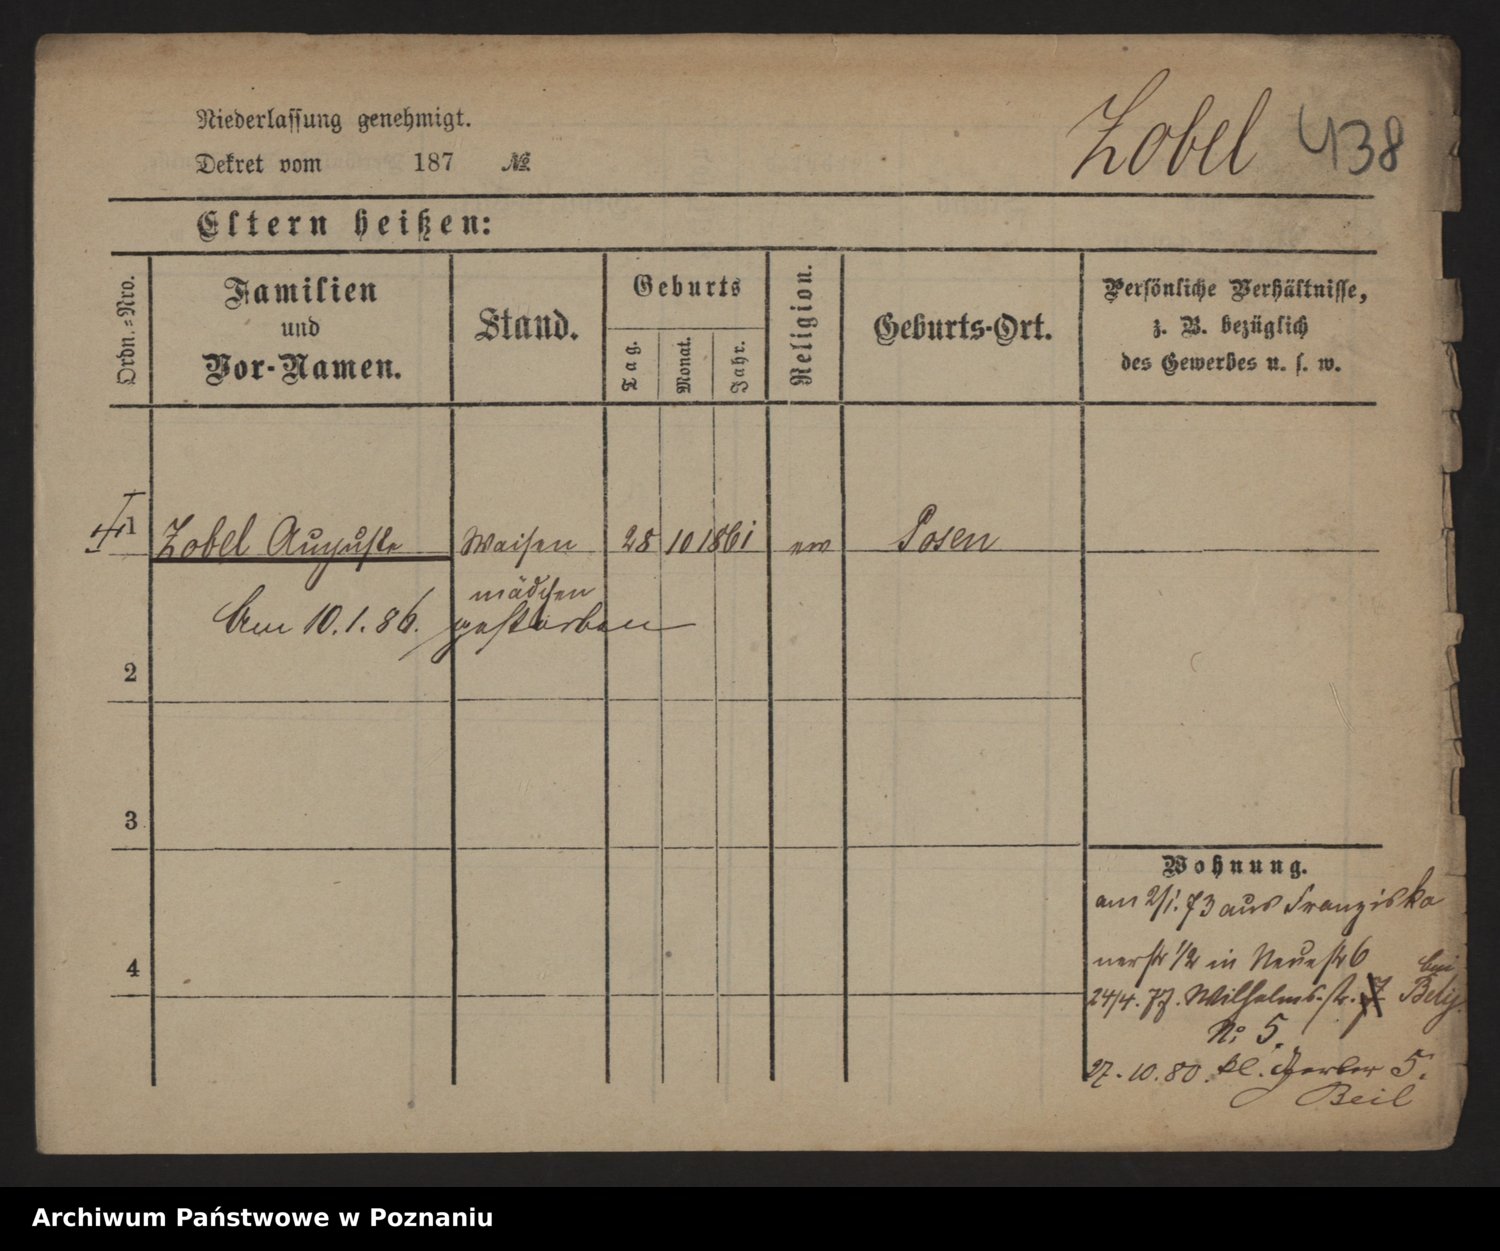 Niederlassung genehmigt.
Zobel 438
Dekret vom 187 №
Eltern heißen:
Ordn.=Nro.
Familien
und
Vor-Namen.
Stand.
Geburts
Tag.
Monat.
Jahr.
Religion.
Geburts-Ort.
Persönliche Verhältnisse,
z. B. bezüglich
des Gewerbes u. s. w.
1 Zobel Auguste Waisen 28 10 1861 ev Posen
mädchen
Am 10.1.86. gestorben
2
3
4
Wohnung.
am 2/1. 73 aus Franziska
nerstr 1/2 in Neue str 6
bei
24/4. 77. Wilhelms-str. 7
No 5.
27. 10. 80. kl. Gerber 5.
Beil
Archiwum Państwowe w Poznaniu